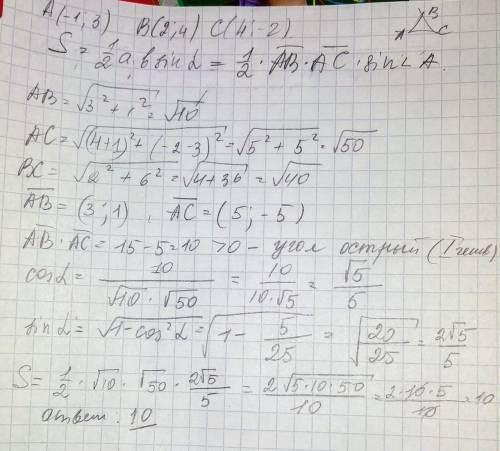 A(-1; 3) B(2; 4) C(4; -2)
B
A C
S = 1/2 a·b sin L = 1/2 · AB · AC · sin ∠ A.
AB = √(3² + 1²) = √10
AC = √((4+1)² + (-2-3)²) = √(5² + 5²) = √50
BC = √(2² + 6²) = √(4+36) = √40
AB = (3; 1), AC = (5; -5)
AB · AC = 15 - 5 = 10 > 0 - угол острый (I
cos L = 10/(√10 · √50) = 10/(10·√5) = √5/5
sin L = √(1-cos² L) = √(1 - 5/25) = √(20/25) = 2√5/5
S = 1/2 · √10 · √50 · 2√5/5 = 2√(5·10·50)/10 = 2·10·5/10 = 10
ответ: 10